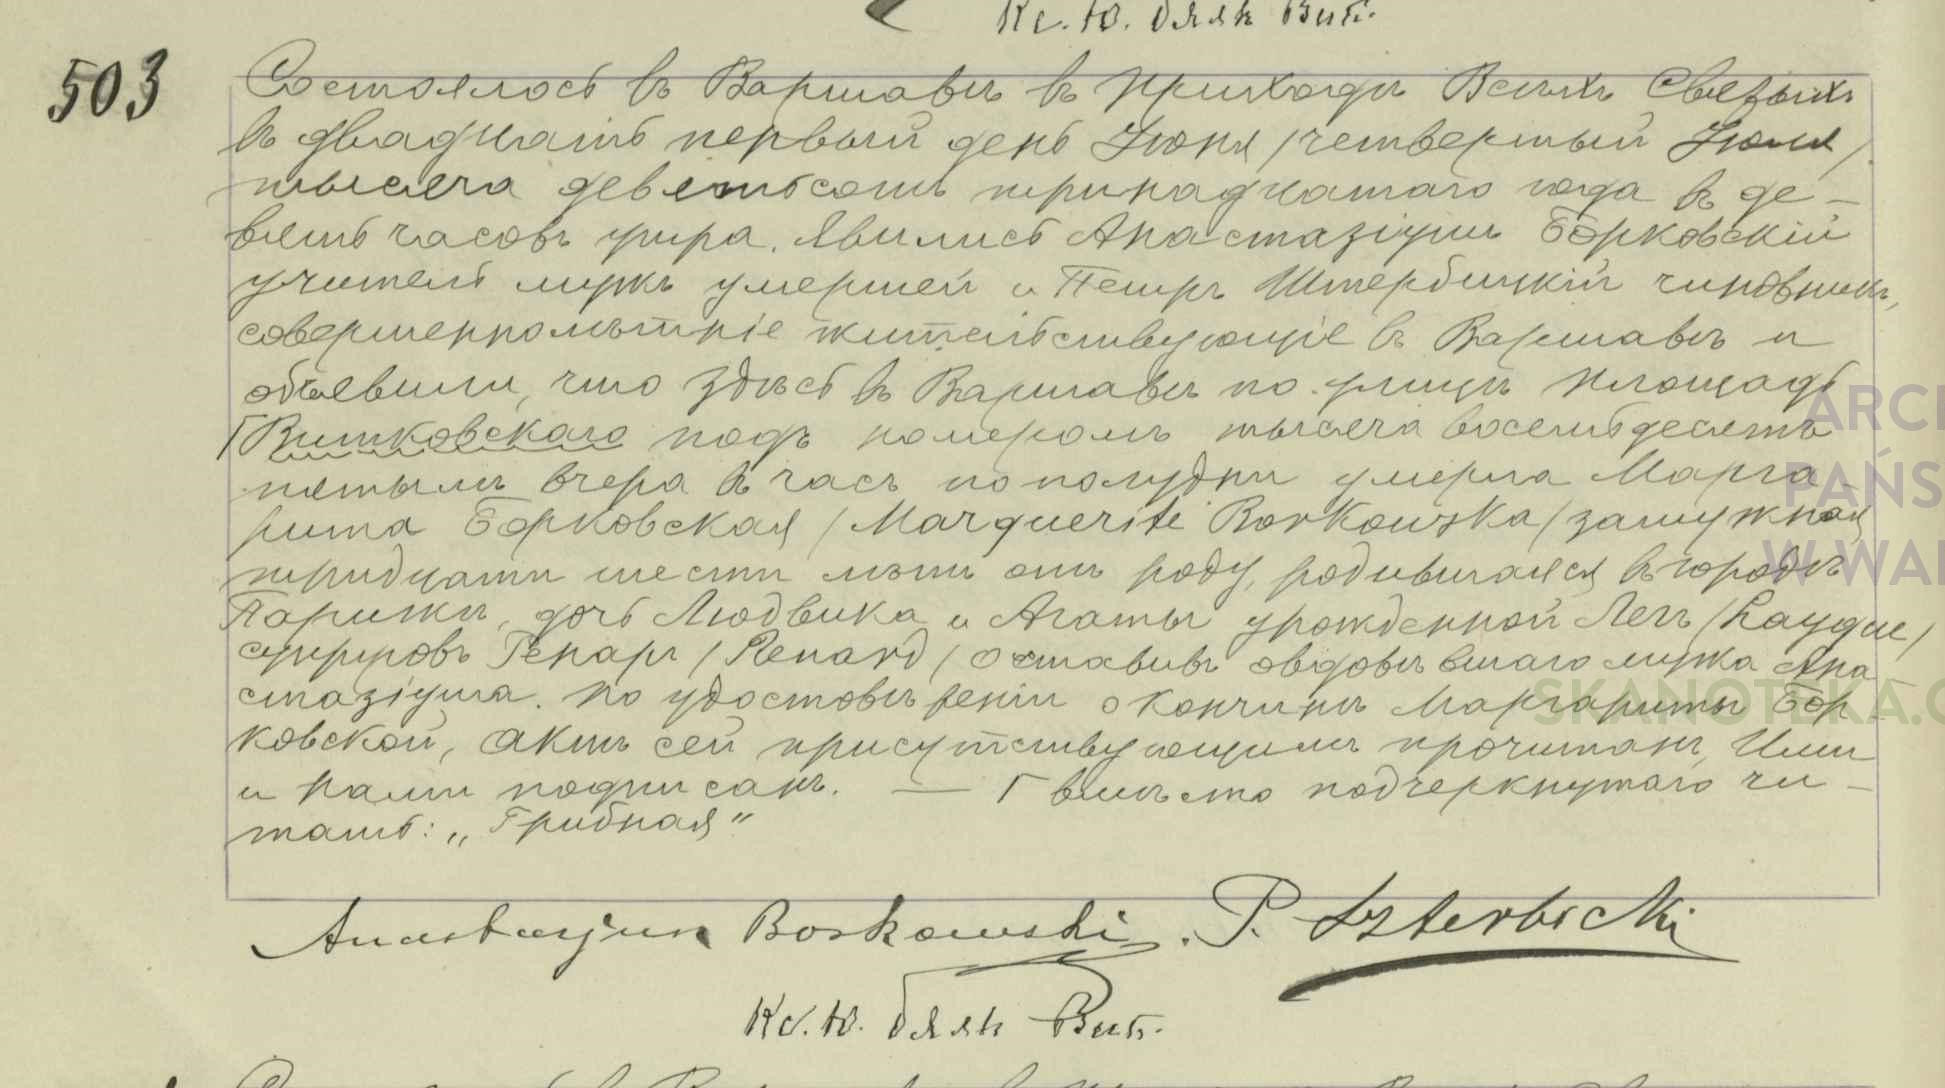 Кс. Ю. Бяяк Вик.
503
Состоялось въ Варшавѣ въ приходѣ Всѣхъ Святыхъ
въ двадцать первый день Іюня /четвертый Іюля/
тысяча девятьсотъ тринадцатаго года въ де-
вять часовъ утра. Явились Анастазіушъ Борковскій
учитель мужъ умершей и Петръ Штербицкій чиновникъ,
совершеннолѣтніе жительствующіе въ Варшавѣ и
объявили, что здѣсь въ Варшавѣ по улицѣ площадь
Г Витковскаго подъ номеромъ тысяча восемьдесятъ
пятымъ вчера въ часъ пополудни умерла Марга
рита Борковская /Marguerite Borkowska/ замужная
тридцати шести лѣтъ отъ роду, родившаяся въ городѣ
Парижѣ, дочь Людвика и Агаты урожденной Легъ /
супруговъ Ренаръ /Renard/ оставивъ овдовѣвшаго мужа Ана
стазіуша. По удостовѣреніи о кончинѣ Маргариты Бор-
ковской, актъ сей присутствующимъ прочитанъ, Ими
и Нами подписанъ. — Г вмѣсто подчеркнутаго чи-
тать: „Грибная“
Anastazjusz Borkowski. P. Szterbicki
Кс. Ю. Бяяк Вик.